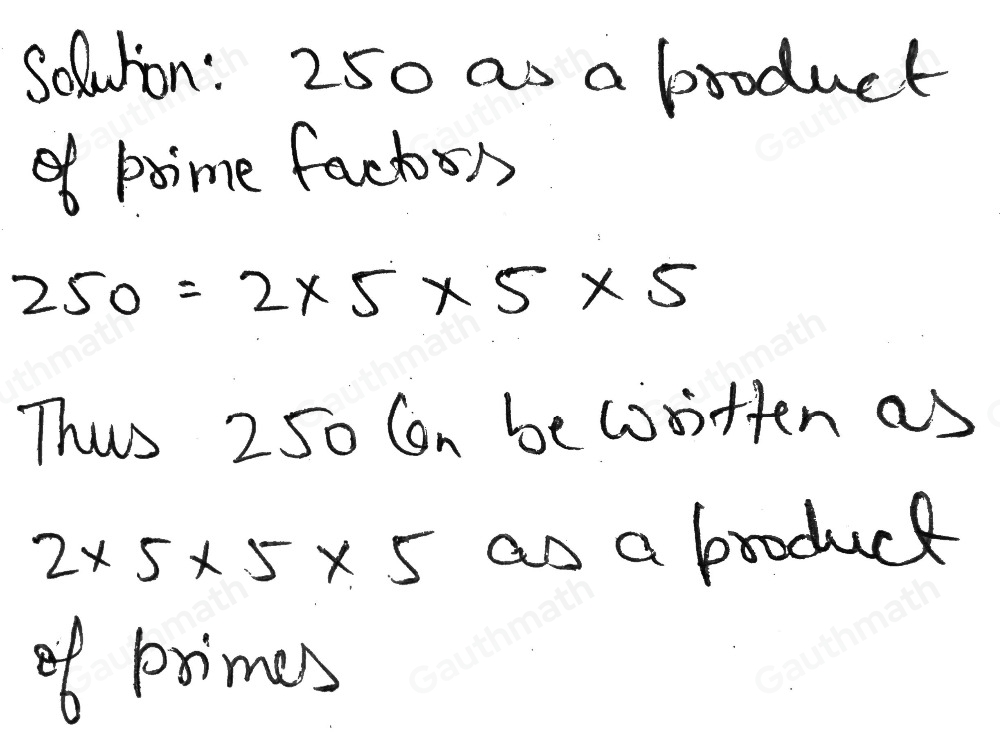 Solution: 250 as a product
of prime factors
250 = 2 × 5 × 5 × 5
Thus 250 Can be written as
2 × 5 × 5 × 5 as a product
of primes
Gauthmath